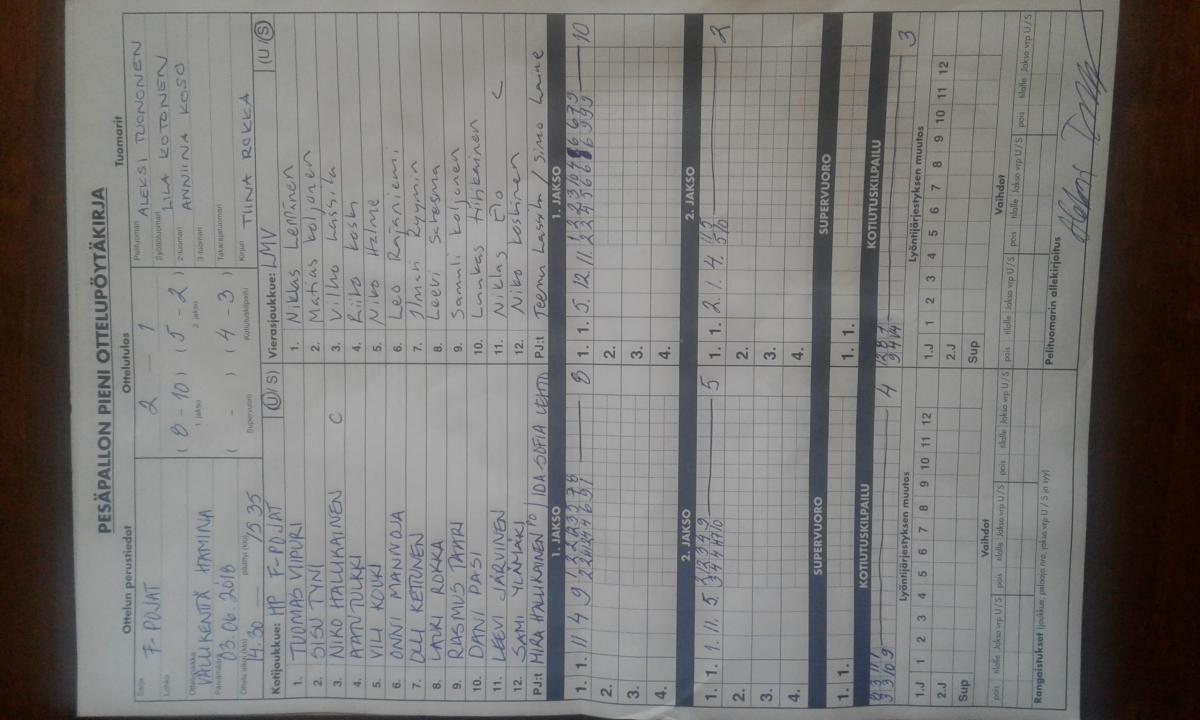 PESÄPALLON PIENI OTTELUPÖYTÄKIRJA
Ottelun perustiedot
Sarja F-POJAT
Lohko
Ottelupaikka VALLIKENTTÄ HAMINA
Päivämäärä 03.06.2018
Ottelu alkoi (klo) 14.30 päättyi (klo) 15.35
Ottelutulos
2 - 1
( 8 - 10 ) ( 5 - 2 )
1 jakso 2. jakso
( - ) ( 4 - 3 )
Supervuoro Kotiutuskilpailu
Tuomarit
Pelituomari ALEKSI TUONONEN
Syöttötuomari LILA KOTONEN
2-tuomari ANNIINA KOSO
3-tuomari
Takarajatuomari
Kirjuri TIINA ROKKA
Kotijoukkue: HP F-POJAT (U/S)
1. TUOMAS VIIPURI
2. SISU TYNI
3. NIKO HALLIKAINEN C
4. AATU TULKKI
5. VILI KOUKI
6. ONNI MANNOJA
7. OLLI KETUNEN
8. LAURI ROKKA
9. RASMUS TAHRI
10. DANI PASI
11. LEEVI JÄRVINEN
12. SAMI YLÄMÄKI
PJ:t MIRA HALLIKAINEN / IDA-SOFIA LEHTO
Vierasjoukkue: LMV (U/S)
1. Niklas Leppänen
2. Matias Koljonen
3. Vilho Lassila
4. Riko Koski
5. Niko Halme
6. Leo Rajaniemi
7. Ilmari Ryymin
8. Leevi
9. Samuli Koljonen
10. Luukas
11. Niklas Elo C
12. Niko Koskinen
PJ:t Teemu / Simo Laine
1. JAKSO
1. 1. 11 4 9 8
2.
3.
4.
1. JAKSO
1. 1. 5. 12. 11. 10
2.
3.
4.
2. JAKSO
1. 1. 1. 11. 5. 5
2.
3.
4.
2. JAKSO
1. 1. 2. 1. 4. 2
2.
3.
4.
SUPERVUORO
1. 1.
SUPERVUORO
1. 1.
KOTIUTUSKILPAILU
4
KOTIUTUSKILPAILU
3
Lyöntijärjestyksen muutos
1.J 1 2 3 4 5 6 7 8 9 10 11 12
2.J
Sup
Lyöntijärjestyksen muutos
1.J 1 2 3 4 5 6 7 8 9 10 11 12
2.J
Sup
Vaihdot
pois tilalle Jakso vrp U / S pois tilalle Jakso vrp U / S pois tilalle Jakso vrp U / S
Vaihdot
pois tilalle Jakso vrp U / S pois tilalle Jakso vrp U / S pois tilalle Jakso vrp U / S
Rangaistukset (joukkue, pelaaja nro, jakso vrp U / S ja syy)
Pelituomarin allekirjoitus